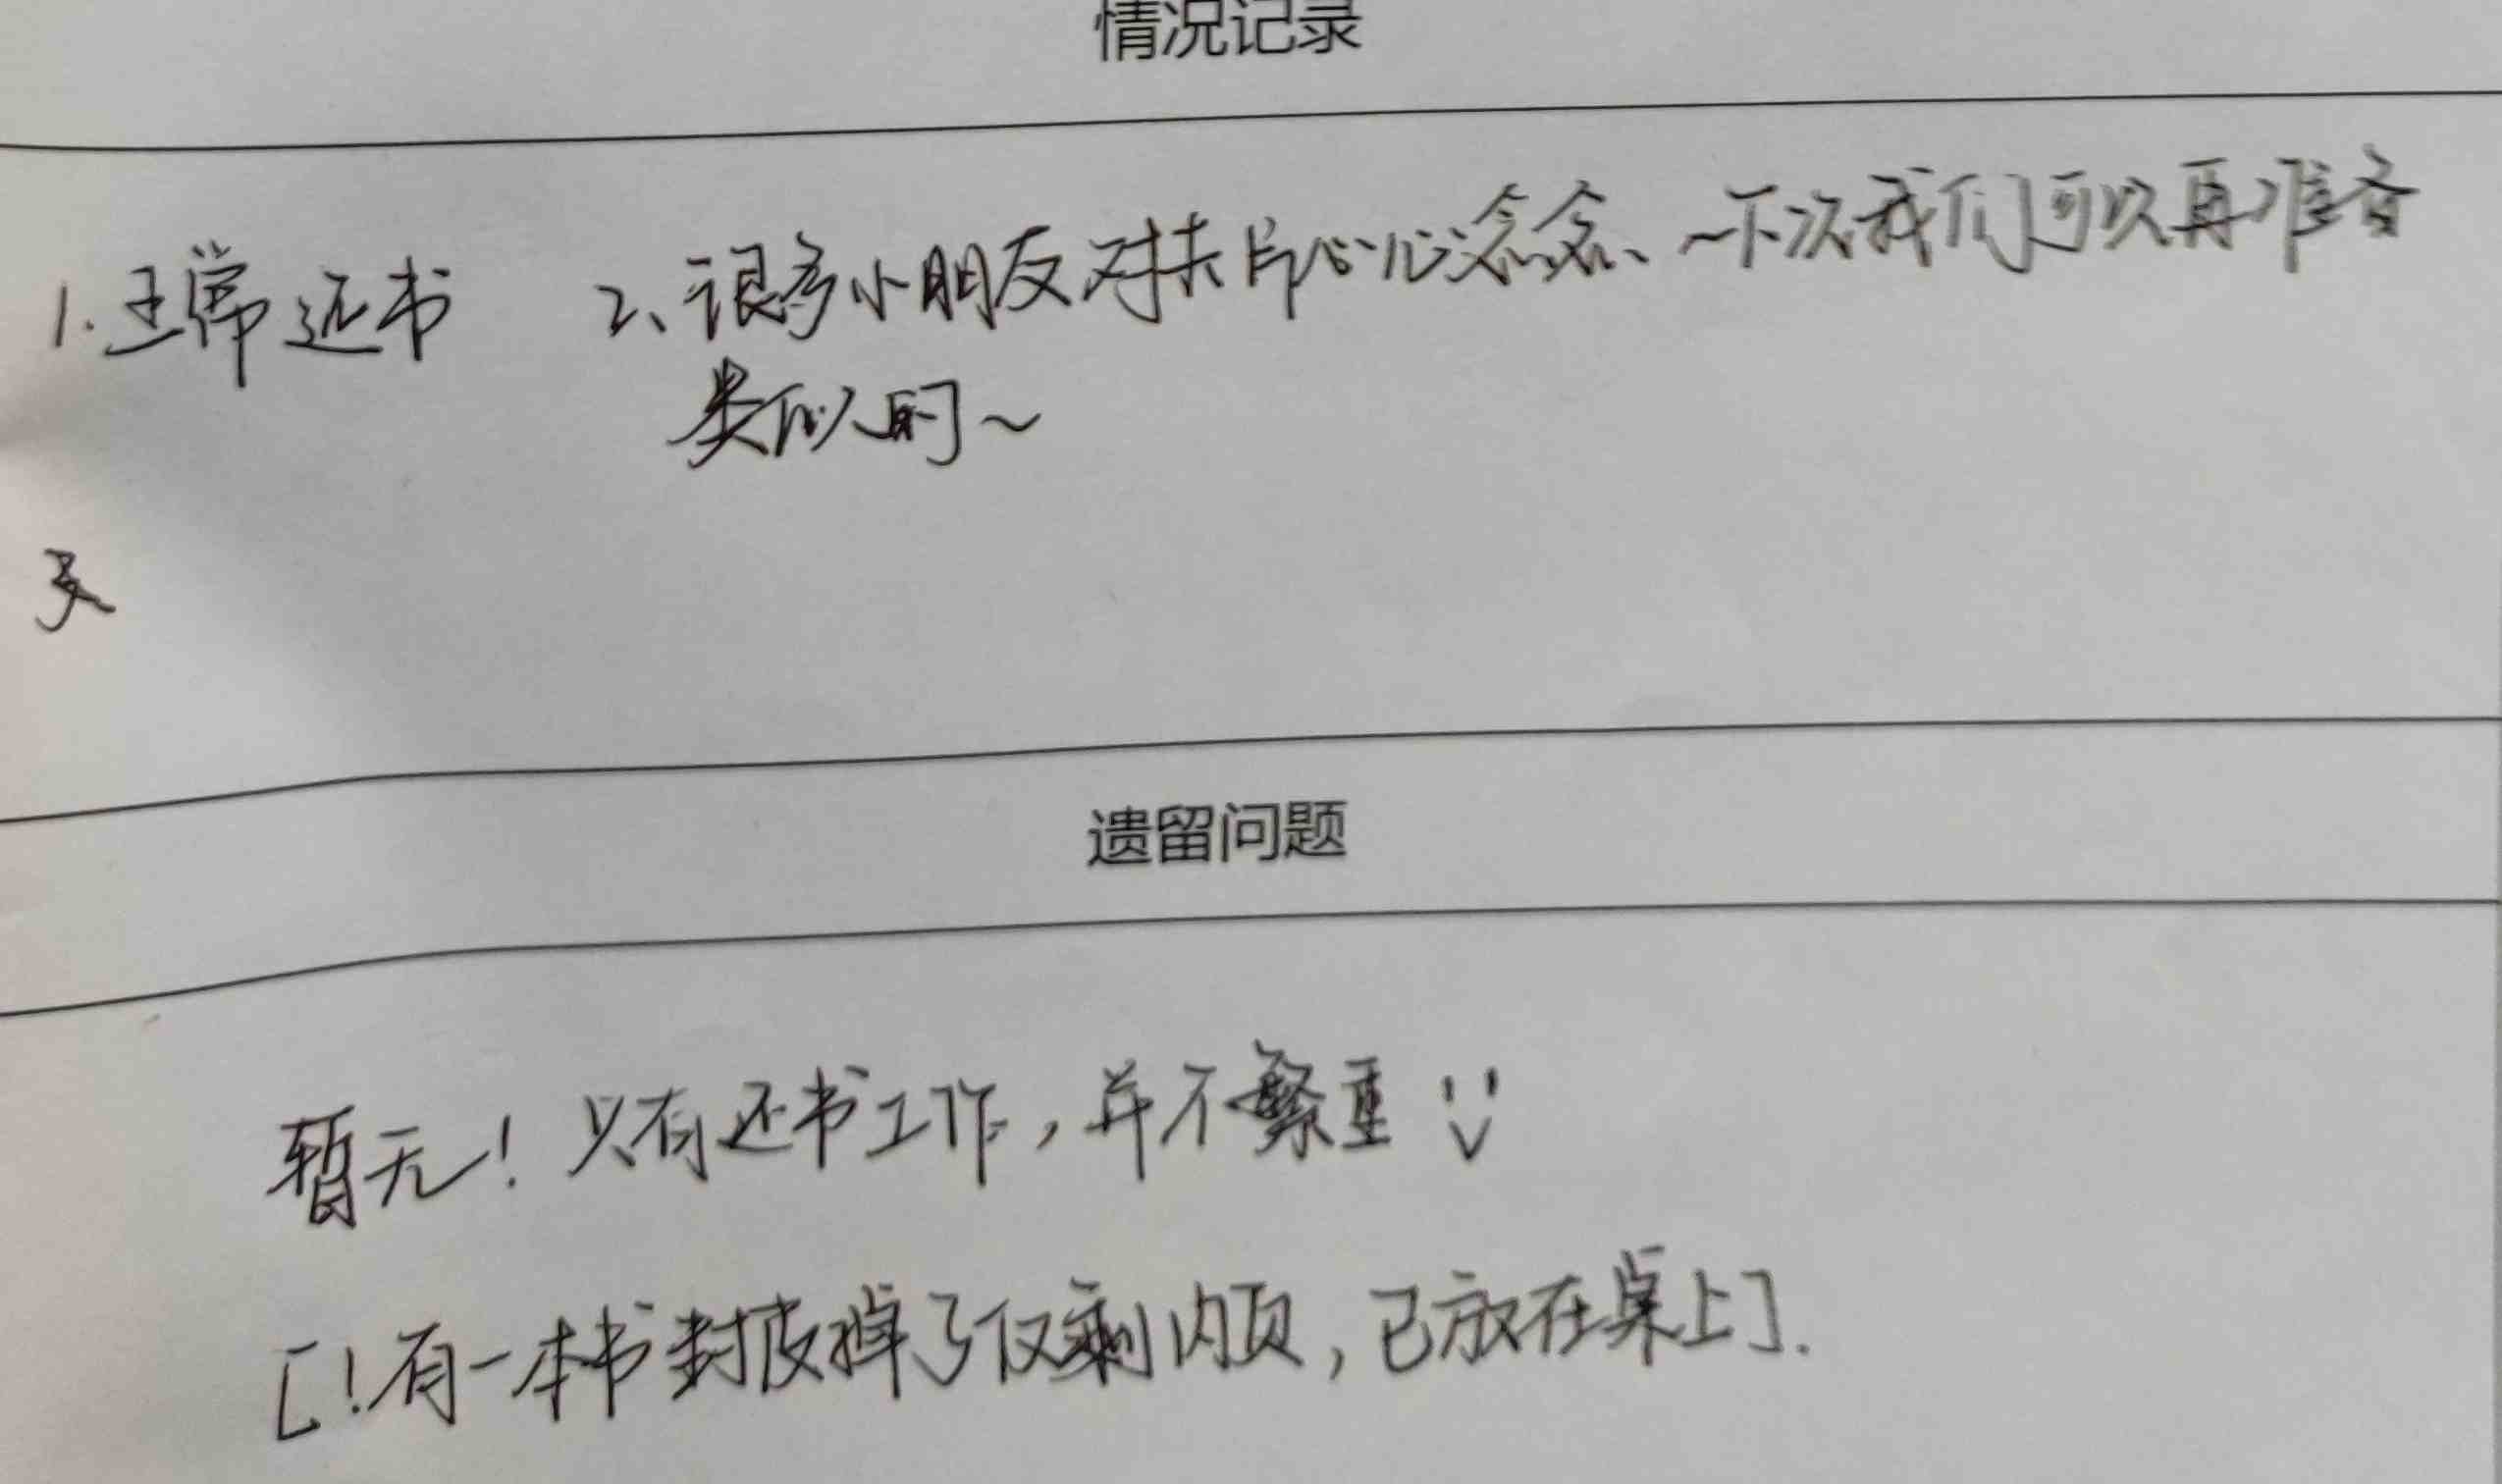 情况记录
1.正常还书 2、很多小朋友对卡片心心念念、~下次我们可以再准备
类似的~
天
遗留问题
暂无!只有还书工作,并不繁重
[!有一本书封皮掉了仅剩内页,已放在桌上].